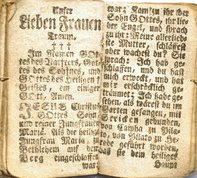 Unser
Lieben Frauen
Traum.
† † †
Im Namen GOt-
tes des Vatters, Got-
tes des Sohnes, und
Gottes des Heiligen
Geistes, ein einiger
GOtt, Amen.
JESUS Christus
Sohn
seiner Jungfrauen
Mariä. Als die heilige
Jungfrau Maria
Berg eingeschlaf-
war; Kam zu ihr der
Sohn GOttes, ihr lie-
der Engel, und sprach
zu ihr: Meine allerliebste
Mutter, schläfest
oder wachest du? Sie
sprach: Ach du mein
Sohn, und du hast
mich erweckt, und
mir erschröcklich ge-
traumet: Ich habe gese-
hen, als wärest du im
Garten gefangen, mit
Stricken gebunden,
von Caipha zu Pila-
to, von Pilato zu He-
rode geführt worden,
daß sie dein heiliges